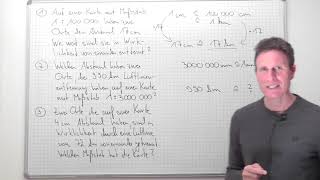 ① Auf einer Karte mit Maßstab
1:100000 haben zwei
Orte den Abstand 17cm
Wie weit sind sie in Wirk-
lichkeit voneinander entfernt?
1 cm ≙ 100000 cm
1 km
·17
·17
17 cm ≙ 17 km
② Welchen Abstand haben zwei
Orte die 990 km Luftlinien-
entfernung haben auf einer
Karte mit Maßstab 1:3000000?
3000000 cm ≙ 1cm
990 km ≙ ?
③ Zwei Orte die auf einer Karte
4 cm Abstand haben sind in
Wirklichkeit durch eine Luftlinie
von 72 km voneinander getrennt.
Welchen Maßstab hat die Karte?